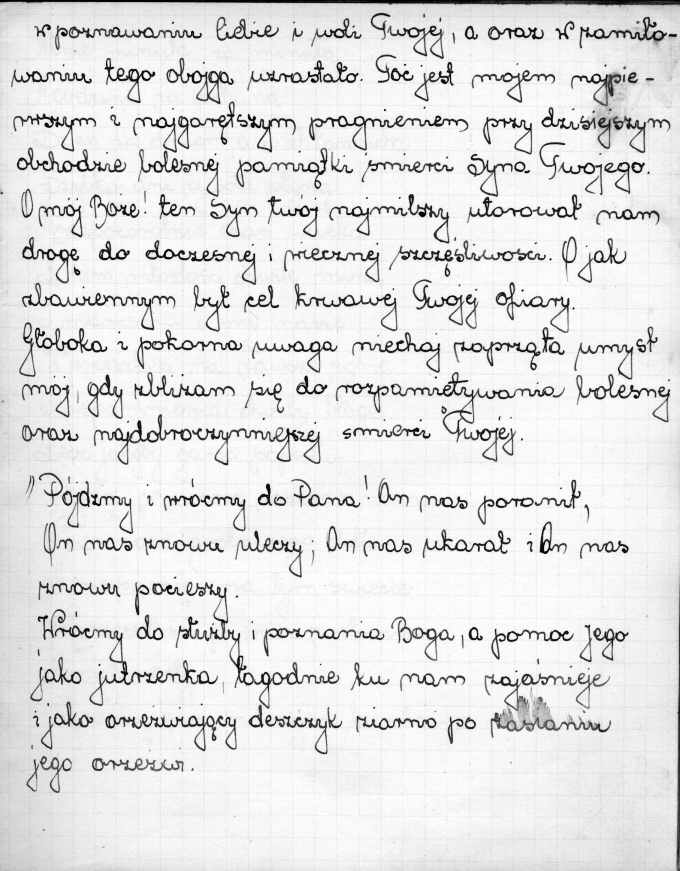 w poznawaniu Ciebie i woli Twojej, a oraz w zamiło-
waniu tego obojga wzrastało. Toć jest mojem najpie-
rwszym i najgarętszym pragnieniem przy dzisiejszym
obchodzie bolesnej pamiątki śmierci Syna Twojego.
O mój Boże! ten Syn twój najmilszy utorował nam
drogę do doczesnej i wiecznej szczęśliwości. O jak
zbawiennym był cel krwawej Twojej ofiary.
Głęboka i pokorna uwaga niechaj zaprząta umysł
mój, gdy zbliżam się do rozpamiętywania bolesnej
oraz najdobroczynniejszej śmierci Twojej.
"Pójdźmy i wróćmy do Pana! On nas poranił,
On nas znowu uleczy; On nas ukarał i On nas
znowu pocieszy.
Wróćmy do służby i poznania Boga, a pomoc Jego
jako jutrzenka, łagodnie ku nam zajaśnieje
i jako orzeźwiający deszczyk ziarno po zasianiu
jego orzeźwi.